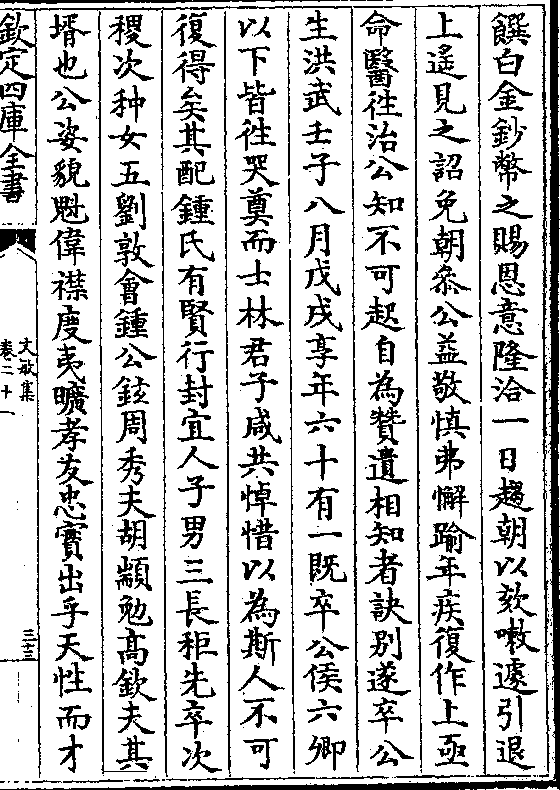 饌白金鈔幣之賜恩意隆洽一日趨朝以欬嗽遽引退
上遙見之詔免朝叅公益敬慎弗懈踰年疾復作上亟
命醫徃治公知不可起自為贊遺相知者訣別遂卒公
生洪武壬子八月戊戌享年六十有一既卒公侯六卿
以下皆徃哭奠而士林君子咸共悼惜以為斯人不可
復得矣其配鍾氏有賢行封宜人子男三長秬先卒次
稷次种女五劉敦會鍾公鉉周秀夫胡顓勉髙欽夫其
壻也公姿貌魁偉襟度夷曠孝友忠實出乎天性而才
欽定四庫全書
文敏集
卷二十一
三十三